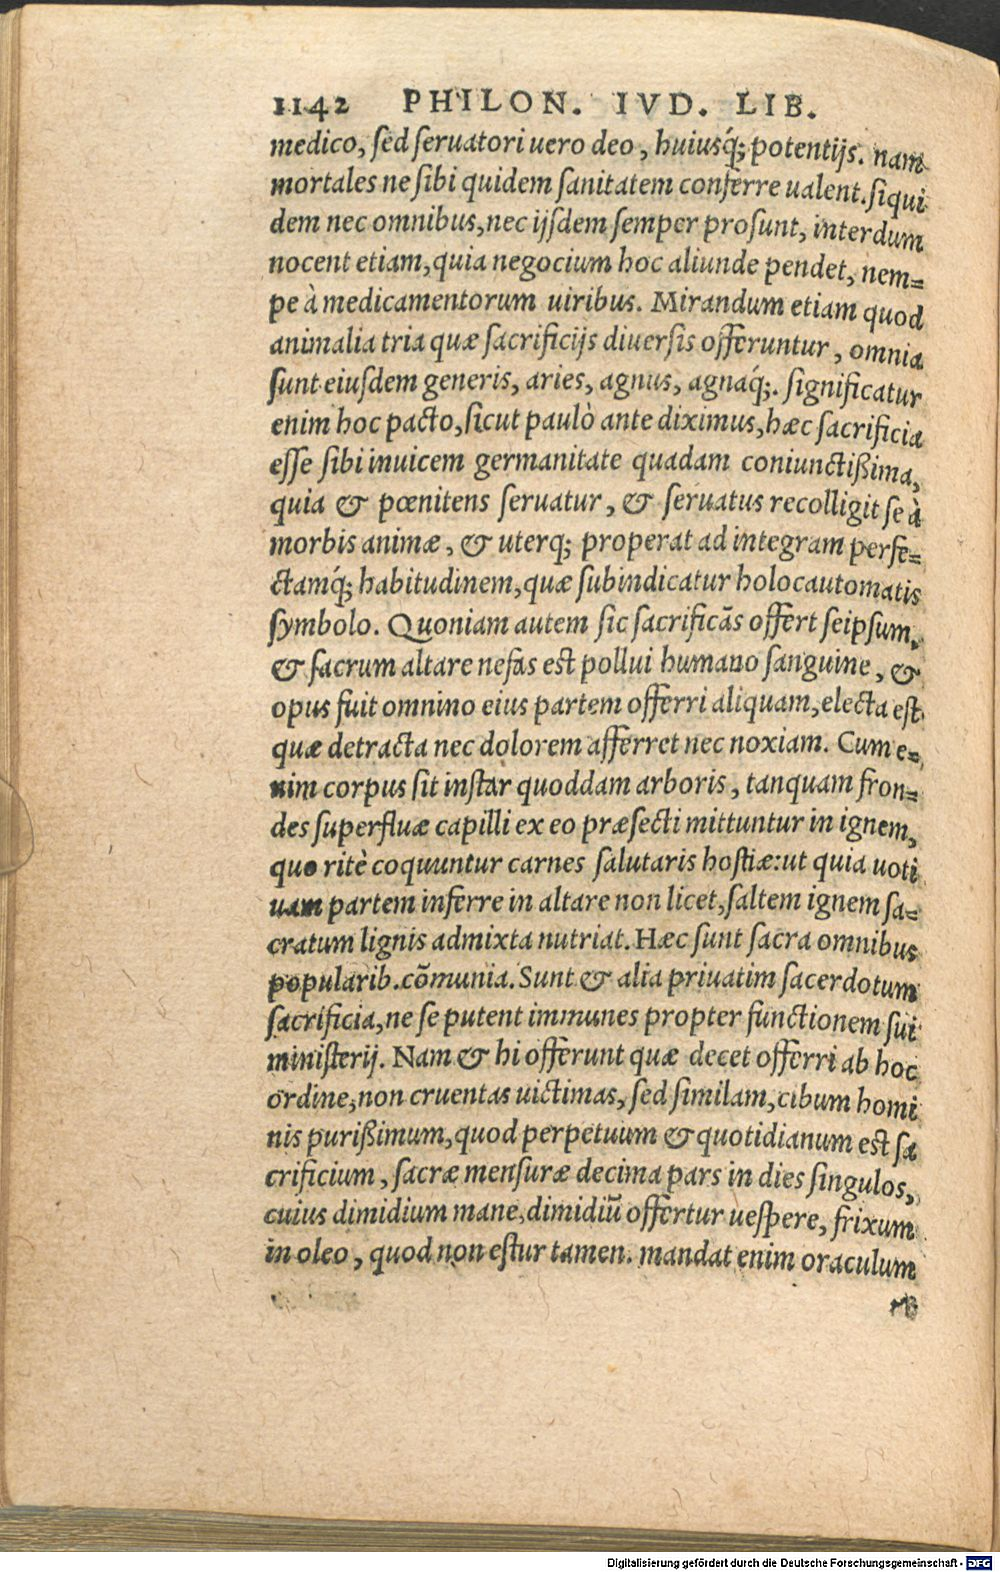 1142 PHILON. IVD. LIB.
medico, sed seruatori uero deo, huiusq́; potentijs. nam
mortales ne sibi quidem sanitatem conferre ualent. siqui
dem nec omnibus, nec ijsdem semper prosunt, interdum
nocent etiam, quia negocium hoc aliunde pendet, nem=
pe à medicamentorum uiribus. Mirandum etiam quod
animalia tria quæ sacrificijs diuersis offeruntur, omnia
sunt eiusdem generis, aries, agnus, agnaq́;. significatur
enim hoc pacto, sicut paulò ante diximus, hæc sacrificia
esse sibi inuicem germanitate quadam coniunctißima,
quia & pœnitens seruatur, & seruatus recolligit se à
morbis animæ, & uterq; properat ad integram perfe=
ctamq́; habitudinem, quæ subindicatur holocautomatis
symbolo. Quoniam autem sic sacrificãs offert seipsum,
& sacrum altare nefas est pollui humano sanguine, &
opus fuit omnino eius partem offerri aliquam, electa est
quæ detracta nec dolorem afferret nec noxiam. Cum e=
nim corpus sit instar quoddam arboris, tanquam fron=
des superfluæ capilli ex eo præsecti mittuntur in ignem,
quo ritè coquuntur carnes salutaris hostiæ: ut quia uoti
uam partem inferre in altare non licet, saltem ignem sa=
cratum lignis admixta nutriat. Hæc sunt sacra omnibus
popularib. cõmunia. Sunt & alia priuatim sacerdotum
sacrificia, ne se putent immunes propter functionem sui
ministerij. Nam & hi offerunt quæ decet offerri ab hoc
ordine, non cruentas uictimas, sed similam, cibum homi
nis purißimum, quod perpetuum & quotidianum est sa
crificium, sacræ mensuræ decima pars in dies singulos,
cuius dimidium mane, dimidiũ offertur uespere, frixum
in oleo, quod non estur tamen. mandat enim oraculum
Digitalisierung gefördert durch die Deutsche Forschungsgemeinschaft - DFG